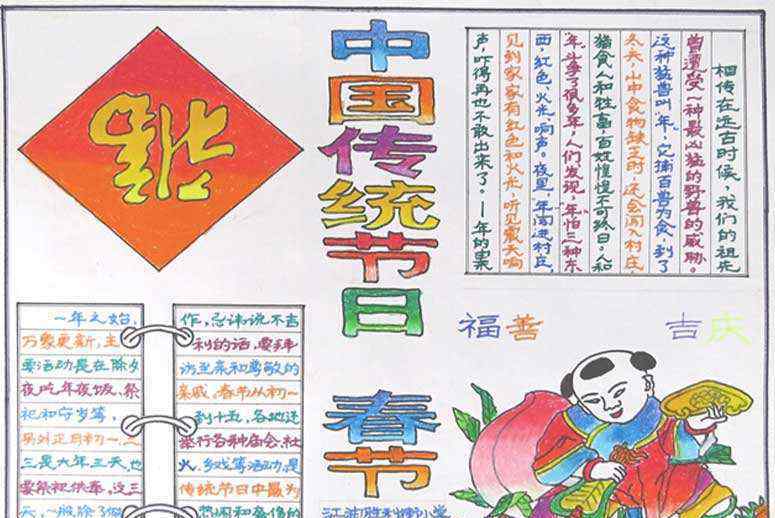 福
中国传统节日 春节
相传在远古时候，我们的祖先
曾遭受一种最凶猛的野兽的威胁。
这种猛兽叫“年”，它捕百兽为食，到了
冬天，山中食物缺乏时，还会闯入村庄，
猎食人和牲畜，百姓惶惶不可终日。人和
“年”斗争了很多年，人们发现，年怕三种东
西，红色、火光、响声。夜里，年闯进村庄，
见到家家有红色和火光，听见震天响
声，吓得再也不敢出来了。——年的由来
福善 吉庆
一年之始，
万象更新，主
要活动是在除夕
夜吃年夜饭、祭
祀和守岁等，
另外正月初一、二
三是大年三天也
要祭祀供奉。这三
天，一般除了做
作，忌讳说不吉
利的话，要拜
访至亲和尊敬的
亲戚。春节从初一
到十五，各地还
举行各种庙会、社
火、乡戏等活动，是
传统节日中最为
热闹和
胜利街小学